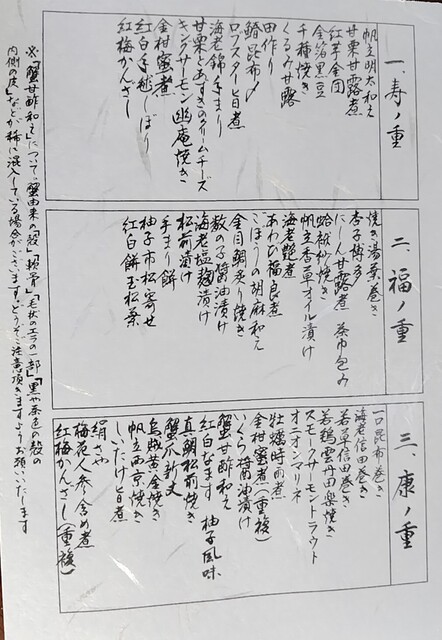 一、寿ノ重
帆立明太和え
甘栗甘露煮
紅芋金団
金箔黒豆
千種焼き
くるみ甘露
田作り
鰊昆布〆
ロブスター旨煮
海老錦手まり
甘栗とあずきのクリームチーズ
キングサーモン幽庵焼き
金柑蜜煮
紅白手毬しぼり
紅梅かんざし
二、福ノ重
焼き湯葉巻き
杏子博多
にしん甘露煮 茶巾包み
蛤袱紗焼き
帆立香草オイル漬け
海老艶煮
あわび福良煮
ごぼうの胡麻和え
金目鯛炙り焼き
数の子醤油漬け
海老塩麹漬け
松前漬け
手まり餅
柚子市松寄せ
紅白餅玉松葉
三、康ノ重
一口昆布巻き
海老信田巻き
若草信田巻き
若鶏雲丹田楽焼き
スモークサーモントラウト
オニオンマリネ
牡蠣時雨煮
金柑蜜煮(重複)
いくら醤油漬け
蟹甘酢和え
紅白なます 柚子風味
真鯛松前焼き
蟹爪新丈
烏賊黄金焼き
帆立西京焼き
しいたけ旨煮
絹さや
梅花人参含め煮
紅梅かんざし(重複)
※「蟹甘酢和え」について、蟹由来の「殻」「軟骨」「毛状のエラの一部」「黒や茶色の殻の
内側の皮」などが稀に混入している場合がございます。どうぞご注意頂きますようお願いいたします